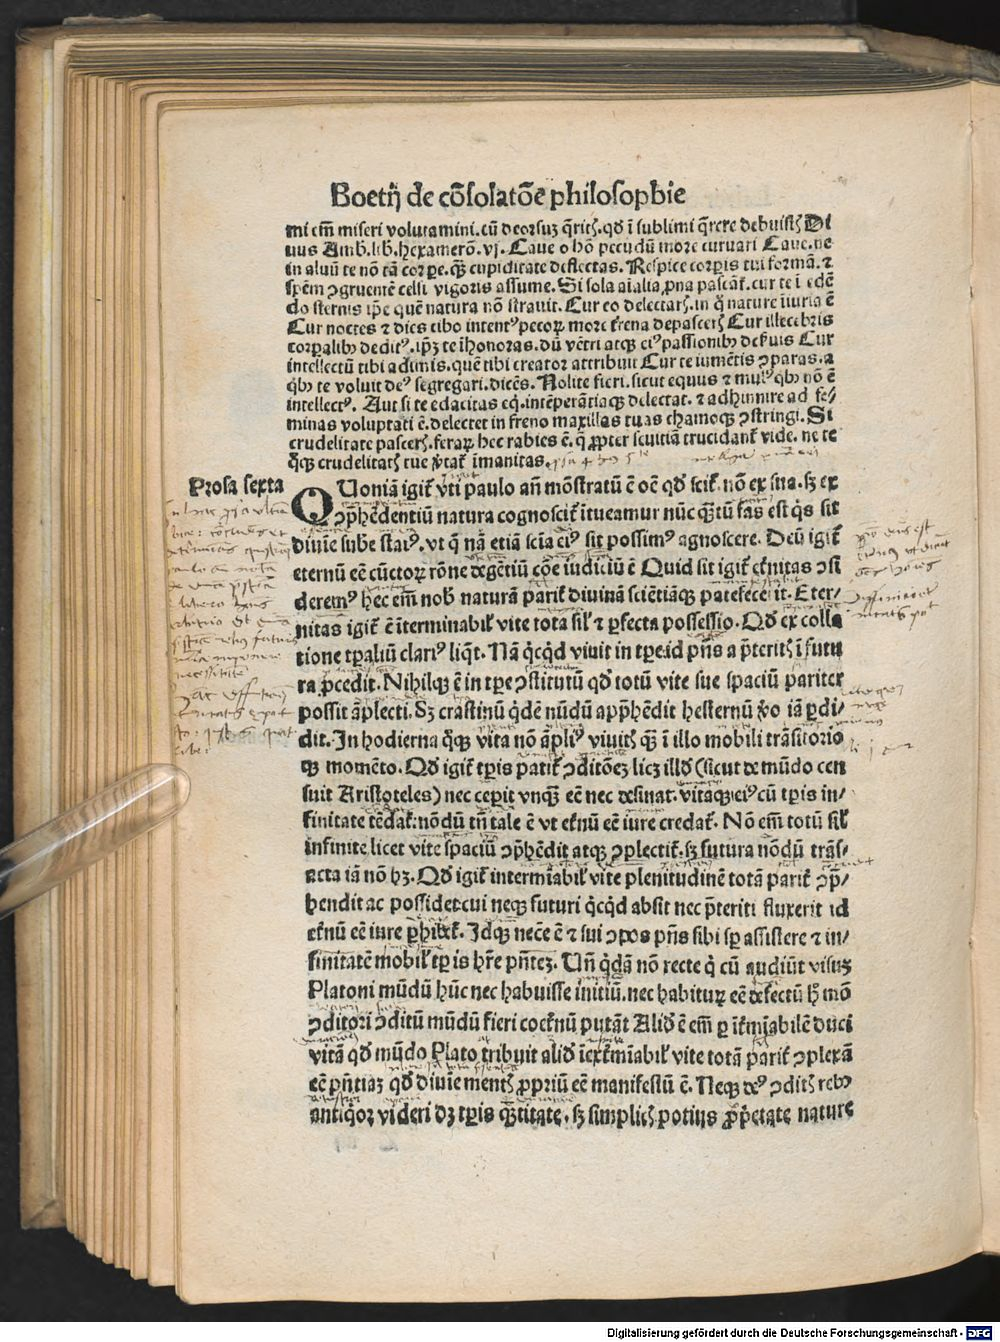 Boetij de cōsolatōe philosophie
mi em̄ miseri volutamini. cū deorsuꝫ q̄ritꝭ. qd̕ ī sublimi q̄rere debuistꝭ Di
uus Amb. lib. hexamerō. vj. Caue o hō pecudū more curuari Caue. ne
in aluū te nō tā corpe. qꝫ̄ cupiditate deflectas. Respice corpis tui formā. ⁊
spēm ꝯgruentē celsi vigoris assume. Si sola aialia ꝓna pascāt̕. cur te ī edē
do sternis ip̄e quē natura nō strauit. Cur eo delectarꝭ. in q̄ nature iīuria ē
Cur noctes ⁊ dies cibo intentꝰ pecoꝝ more t̕rena depascerꝭ Cur illecebris
corꝑalibꝰ deditꝰ. ip̄ꝫ te ihonoras. dū vētri atqꝫ eiꝰ passionibꝰ deẜuis Cur
intellectū tibi adimis. quē tibi creator attribuit Cur te iumētis ꝯparas. a
qͥbꝰ te voluit deꝰ segregari. dicēs. Nolite fieri. sicut equus ⁊ mulꝰ qͥbꝰ nō ē
intellectꝰ. Aut si te edacitas eq̄. intēperātiaqꝫ delectat. ⁊ adhinnire ad fe/
minas voluptati ē. delectet in freno maxillas tuas chamoqꝫ ꝯstringi. Si
crudelitate pascerꝭ. feraꝝ hec rabies ē. q̄ ꝓpter seuitiā trucidant̕ vide. ne te
qͦqꝫ crudelitatꝭ tue v̕tat̕ īmanitas.
Prosa sexta
QUoniā igit̕ vti paulo an̄ mōstratū ē oē qd̕ scit̕. nō ex sua. sꝫ ex
ꝯp̄hēdentiū natura cognoscit̕ itueamur nūc quātū fas est qͥs sit
diuīe sube statꝰ. vt q̄ nā etiā scīa eiꝰ sit possimꝰ agnoscere. Deū igit̕
eternū eē cūctoꝝ rōne degētiū cōe iudiciū ē Quid sit igit̕ et̕nitas ꝯsi
deremꝰ hec em̄ nob̕ naturā parit̕ diuinā sciētiāqꝫ patefecerit. Eter/
nitas igit̕ ē īterminabil̕ vite tota sil̕ ⁊ ꝑfecta possessio. Qd̕ ex colla
tione tꝑaliū clariꝰ liqͣt. Nā qͥcqͥd viuit in tꝑe. id pn̄s a p̄teritꝭ ī futu
ra ꝓcedit. Nihilqꝫ ē in tꝑe ꝯstitutū qd̕ totū vite sue spaciū pariter
possit āplecti. Sꝫ crastinū qͥdē nūdū app̄hēdit hesternū v̕o iā ꝑdi/
dit. In hodierna qͦqꝫ vita nō ápliꝰ viuitꝭ qꝫ̄ ī illo mobili trāsitorio
qꝫ momēto. Qd̕ igit̕ tꝑis patit̕ ꝯditōeꝫ licꝫ illd̕ (sicut de mūdo cen
suit Aristoteles) nec ceperit vnqꝫ̄ eē nec desinat. vitaqꝫ eiꝰ cū tꝑis in/
finitate tēdat̕: nōdū tn̄ tale ē vt et̕nū eē iure credat̕. Nō em̄ totū sil̕
infinite licet vite spaciū ꝯp̄hēdit atqꝫ ꝯplectit̕. sꝫ futura nōdū trās/
acta iā nō hꝫ. Qd̕ igit̕ intermīabil̕ vite plenitudinē totā parit̕ ꝯp̄/
hendit ac possidet: cui neqꝫ futuri qͥcqͥd absit nec p̄teriti fluxerit id
et̕nū eē iure ꝑhibet̕. Idqꝫ necē ē ⁊ sui ꝯpos pn̄s sibi sꝑ assistere ⁊ in/
finitatē mobil̕ tꝑis hr̄e pn̄teꝫ. Un̄ qͥdā nō recte qͥ cū audiūt visuꝫ
Platoni mūdū hūc nec habuisse initiū. nec habituꝝ eē defectū hͦ mō
ꝯditori ꝯditū mūdū fieri coet̕nū putāt Aliō ē em̄ ꝑ īt̕mīabilē duci
vitā qd̕ mūdo Plato tribuit aliō īt̕mīabil̕ vite totā parit̕ ꝯplexā
eē pn̄tiaꝫ qd̕ diuīe mentꝭ ꝓpriū eē manifestū ē. Neqꝫ deꝰ ꝯditꝭ rebꝰ
antiqͦꝝ videri dꝫ tꝑis quātitate. sꝫ simplicꝭ potius ꝓprietate nature
Digitalisierung gefördert durch die Deutsche Forschungsgemeinschaft - DFG